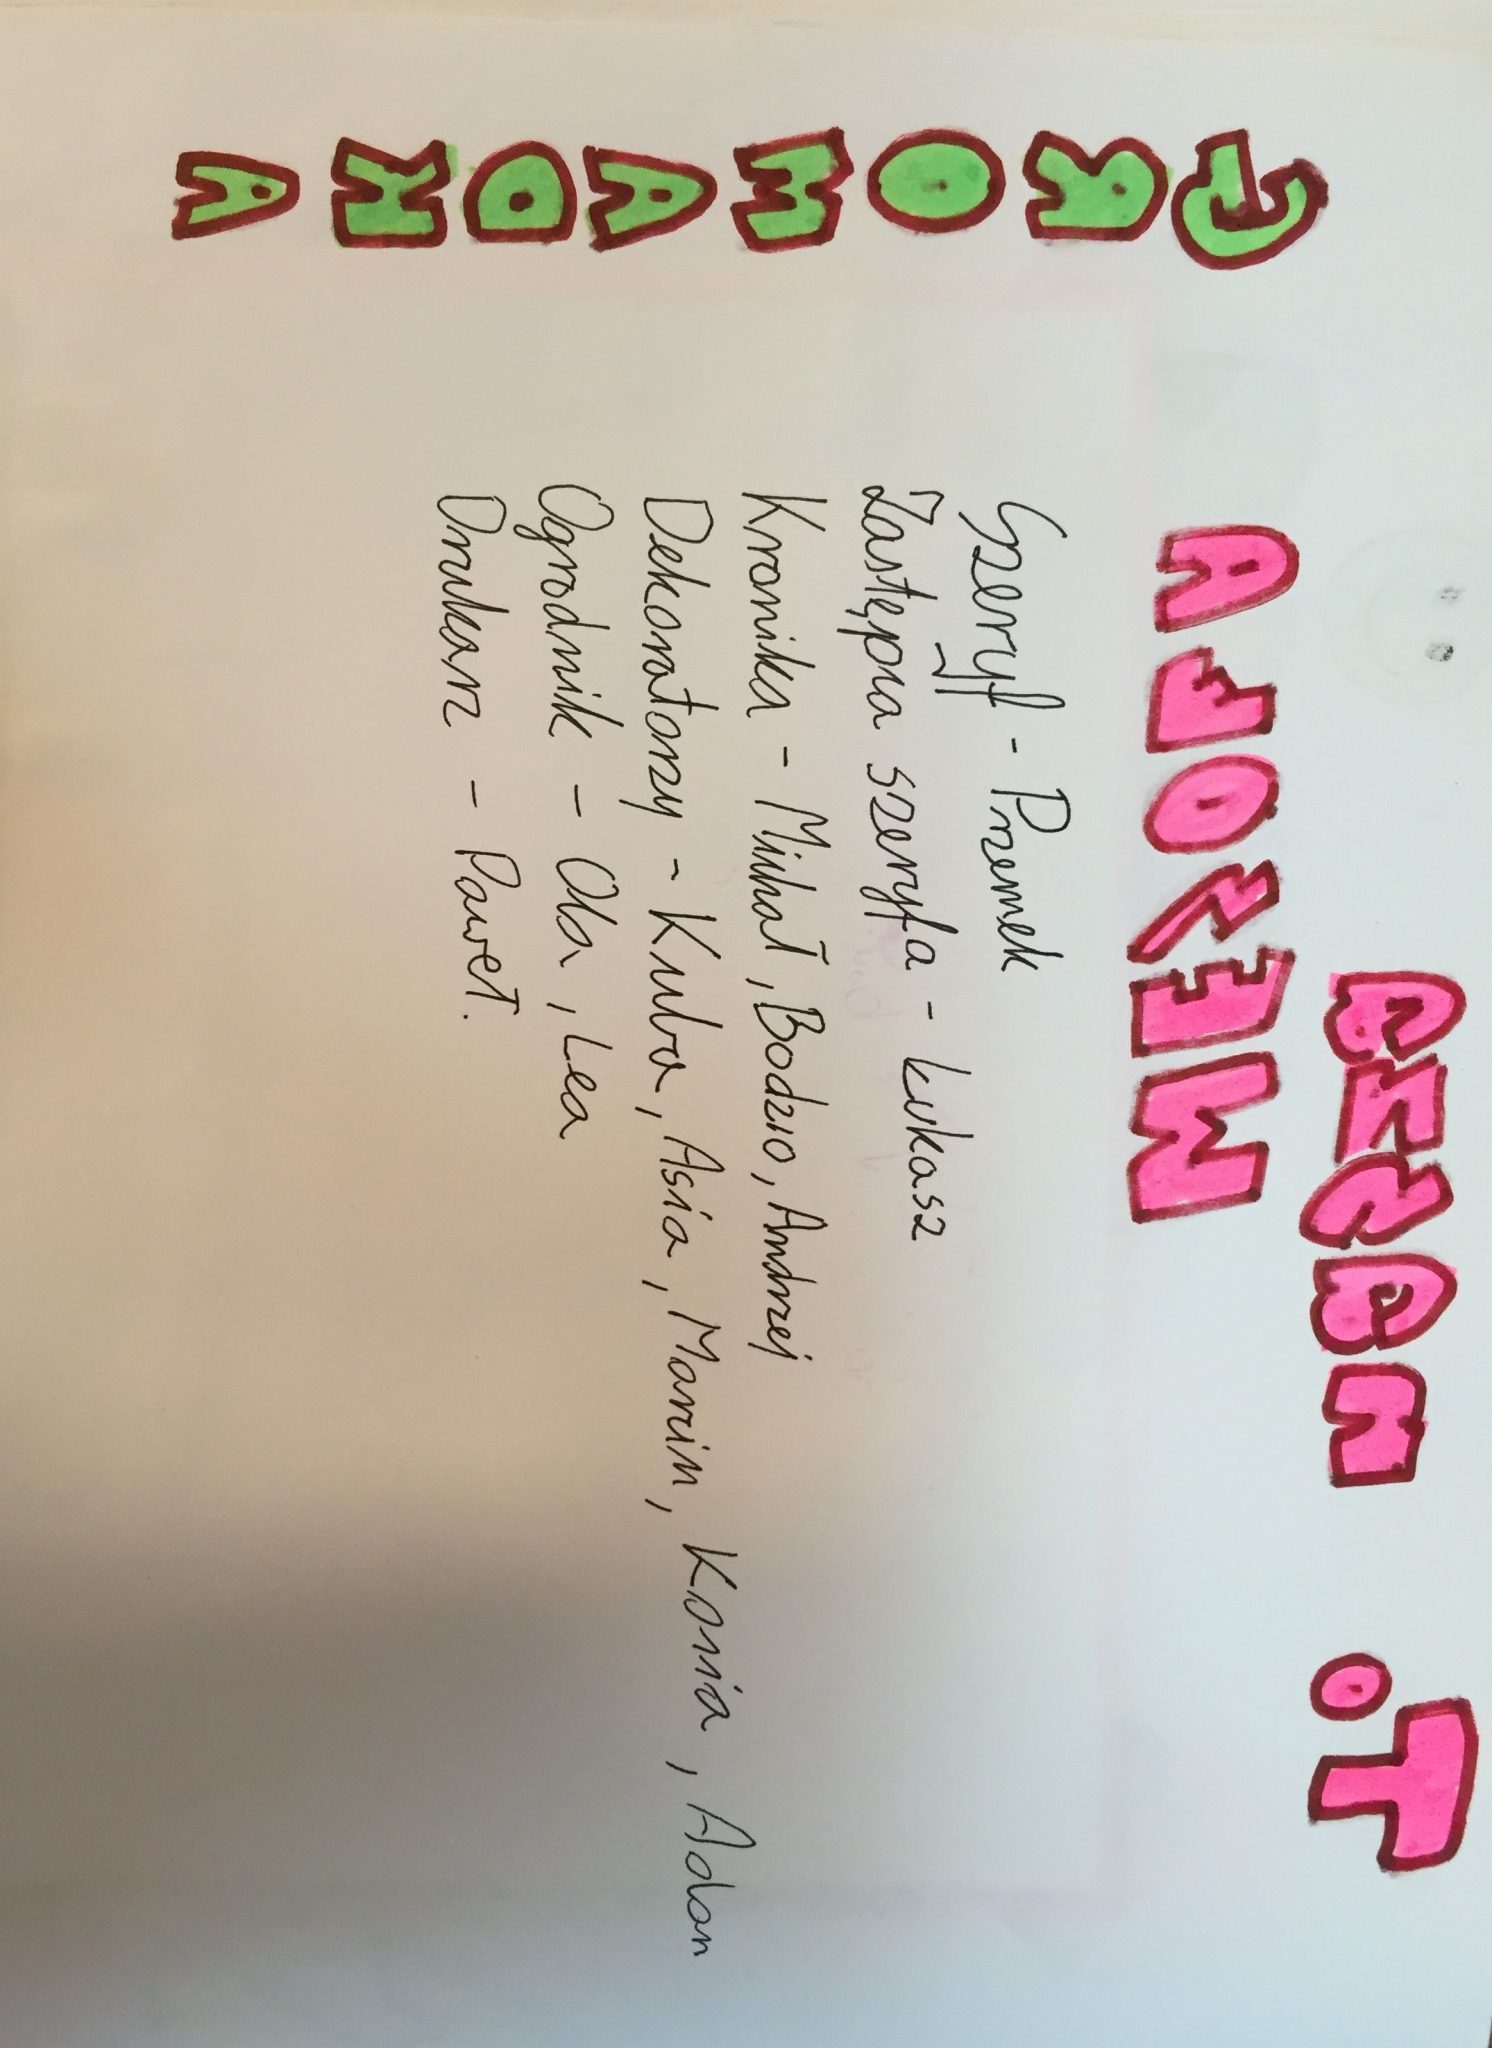 GROMADKA
Szeryf - Przemek
Zastępca szeryfa - Łukasz
Kronika - Michał, Bodzio, Andrzej
Dekoratorzy - Kuba, Asia, Marcin, Kasia, Adam
Ogrodnik - Ola, Lea
Drukarz - Paweł.